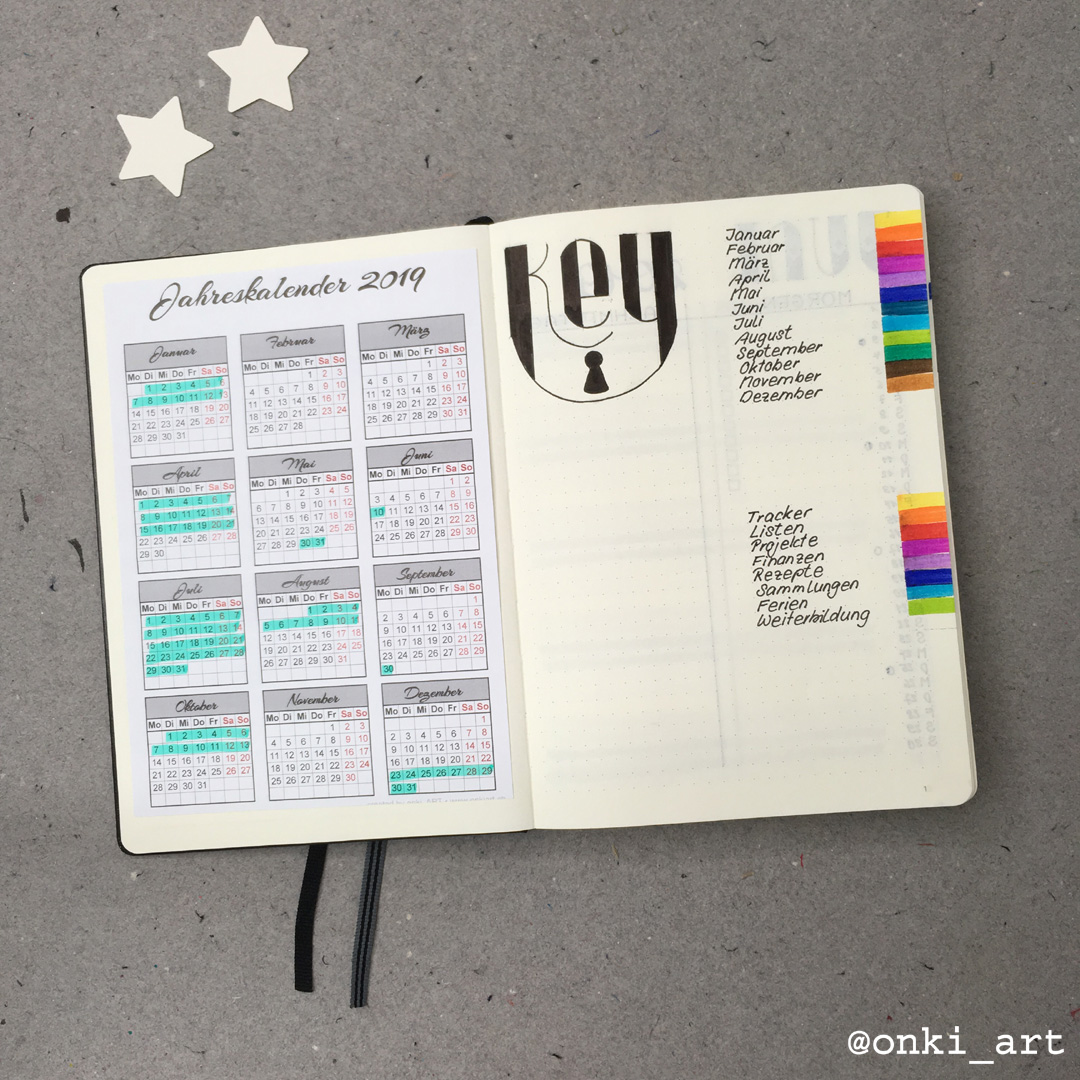 Jahreskalender 2019
Januar
Mo Di Mi Do Fr Sa So
1 2 3 4 5 6
7 8 9 10 11 12 13
14 15 16 17 18 19 20
21 22 23 24 25 26 27
28 29 30 31
Februar
Mo Di Mi Do Fr Sa So
1 2 3
4 5 6 7 8 9 10
11 12 13 14 15 16 17
18 19 20 21 22 23 24
25 26 27 28
März
Mo Di Mi Do Fr Sa So
1 2 3
4 5 6 7 8 9 10
11 12 13 14 15 16 17
18 19 20 21 22 23 24
25 26 27 28 29 30 31
April
Mo Di Mi Do Fr Sa So
1 2 3 4 5 6 7
8 9 10 11 12 13 14
15 16 17 18 19 20 21
22 23 24 25 26 27 28
29 30
Mai
Mo Di Mi Do Fr Sa So
1 2 3 4 5
6 7 8 9 10 11 12
13 14 15 16 17 18 19
20 21 22 23 24 25 26
27 28 29 30 31
Juni
Mo Di Mi Do Fr Sa So
1 2
3 4 5 6 7 8 9
10 11 12 13 14 15 16
17 18 19 20 21 22 23
24 25 26 27 28 29 30
Juli
Mo Di Mi Do Fr Sa So
1 2 3 4 5 6 7
8 9 10 11 12 13 14
15 16 17 18 19 20 21
22 23 24 25 26 27 28
29 30 31
August
Mo Di Mi Do Fr Sa So
1 2 3 4
5 6 7 8 9 10 11
12 13 14 15 16 17 18
19 20 21 22 23 24 25
26 27 28 29 30 31
September
Mo Di Mi Do Fr Sa So
2 3 4 5 6 7 8
9 10 11 12 13 14 15
16 17 18 19 20 21 22
23 24 25 26 27 28 29
30
Oktober
Mo Di Mi Do Fr Sa So
1 2 3 4 5 6
7 8 9 10 11 12 13
14 15 16 17 18 19 20
21 22 23 24 25 26 27
28 29 30 31
November
Mo Di Mi Do Fr Sa So
1 2 3
4 5 6 7 8 9 10
11 12 13 14 15 16 17
18 19 20 21 22 23 24
25 26 27 28 29 30
Dezember
Mo Di Mi Do Fr Sa So
1
2 3 4 5 6 7 8
9 10 11 12 13 14 15
16 17 18 19 20 21 22
23 24 25 26 27 28 29
30 31
Key
Januar
Februar
März
April
Mai
Juni
Juli
August
September
Oktober
November
Dezember
Tracker
Listen
Projekte
Finanzen
Rezepte
Sammlungen
Ferien
Weiterbildung
1
@onki_art